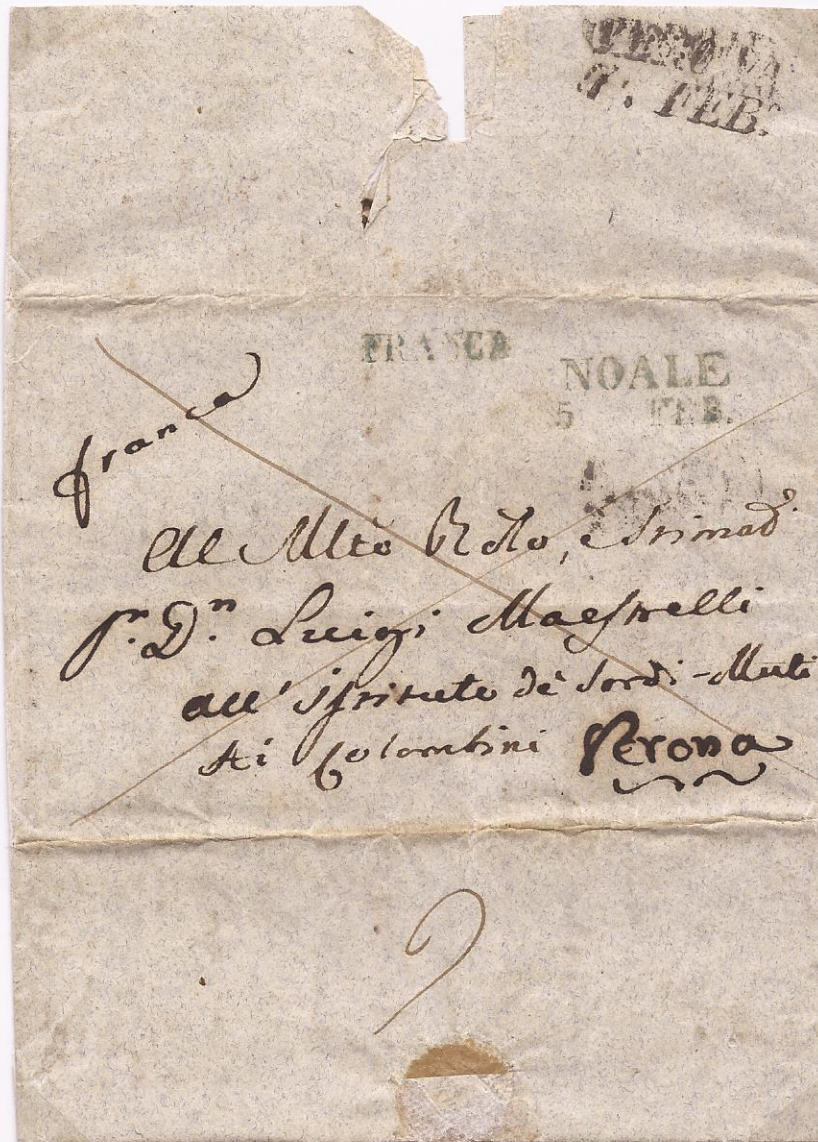 VERONA
7. FEB.
FRANCA
NOALE
5 FEB.
franca
Al Mlto Rdo, e Stimad.
Sr. Dn. Luigi Maestrelli
all' istituto dè Sordi-Muti
Ai Colombini Verona